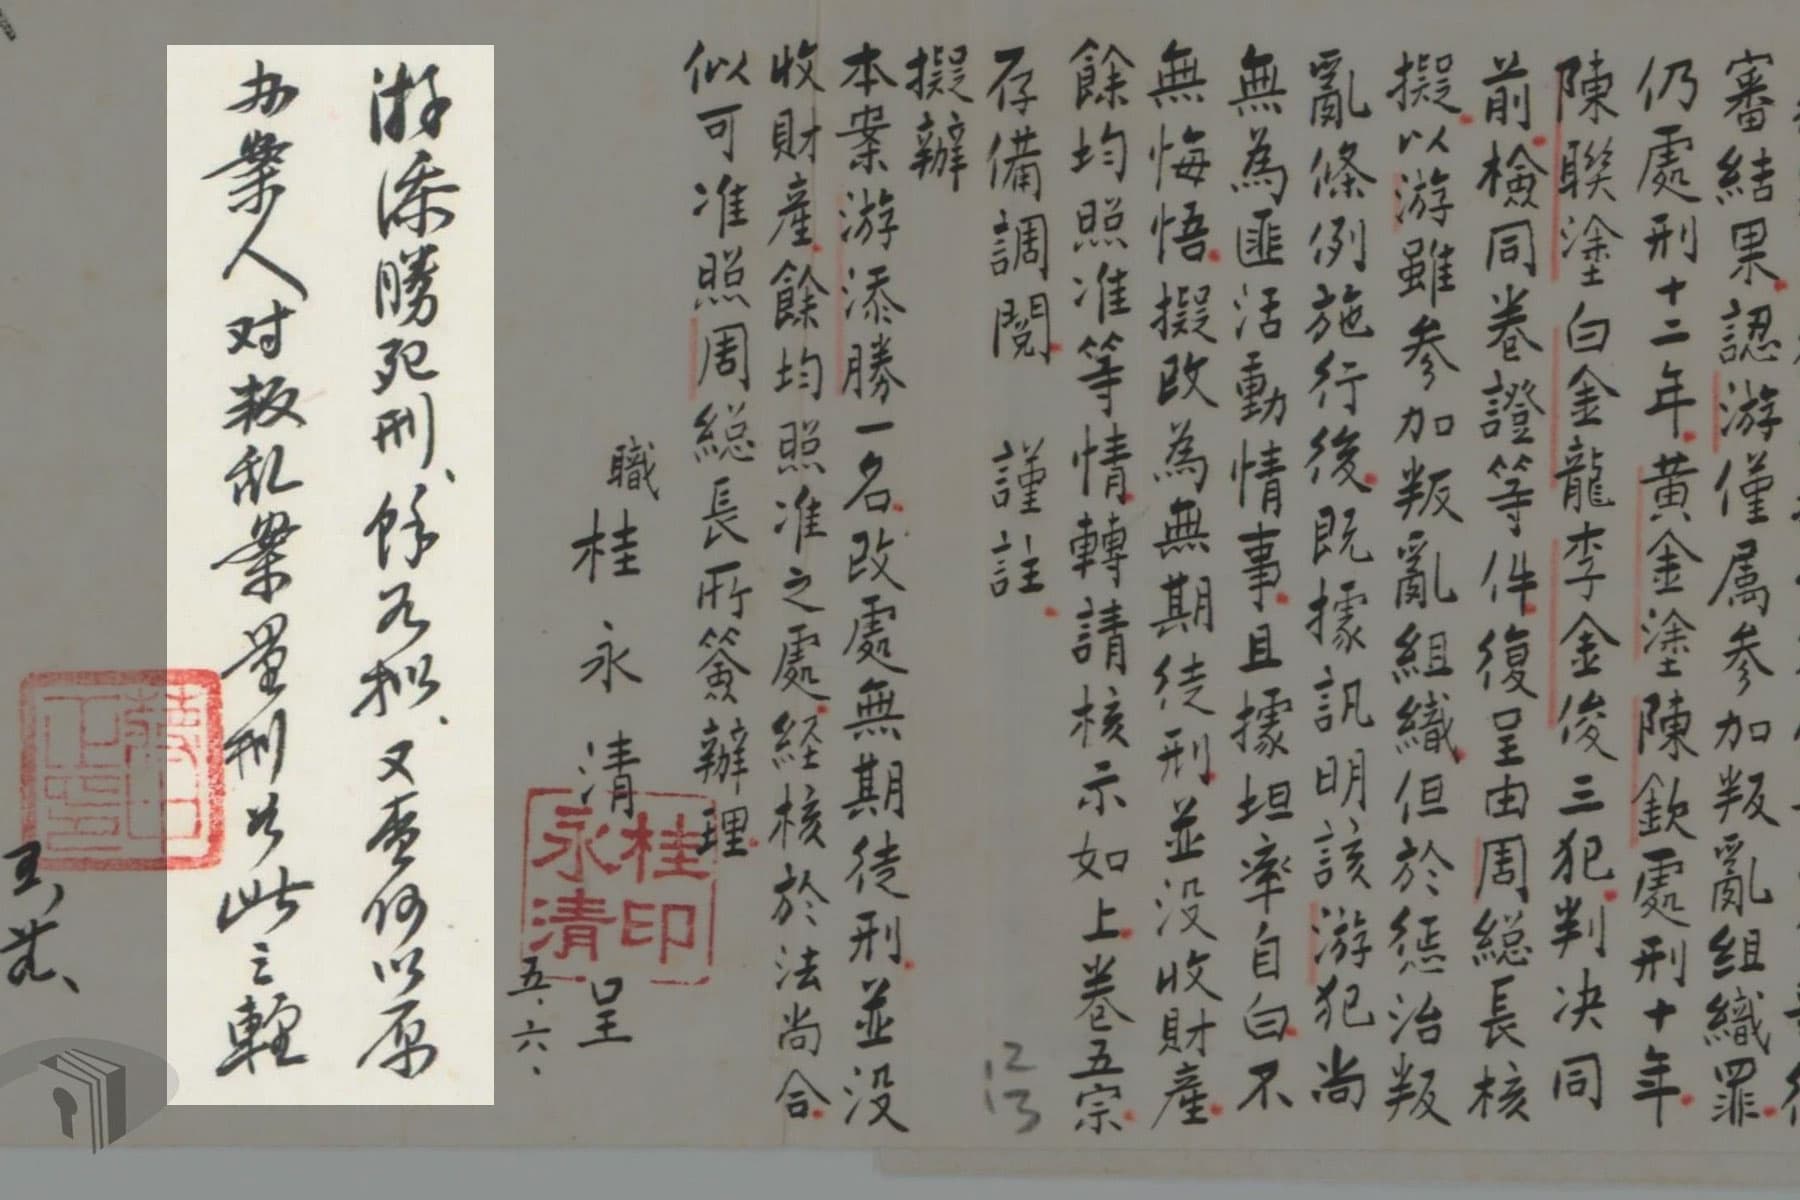 審結果認游僅屬參加叛亂組織罪
仍處刑十二年黃金塗陳欽處刑十年
陳聯塗白金龍李金俊三犯判決同
前檢同卷證等件復呈由周總長核
擬以游雖參加叛亂組織但於懲治叛
亂條例施行後既據訊明該游犯尚
無為匪活動情事且據坦率自白不
無悔悟擬改為無期徒刑並没收財產
餘均照准等情轉請核示如上卷五宗
存備調閱 謹註
擬辦
本案游添勝一名改處無期徒刑並没
收財產餘均照准之處經核於法尚合
似可准照周總長所簽辦理
職桂永清呈
五、六、
桂永清印
12
13
游添勝死刑、餘如擬、又查何以原
办案人对叛乱案量刑如此之輕
蔣中正印